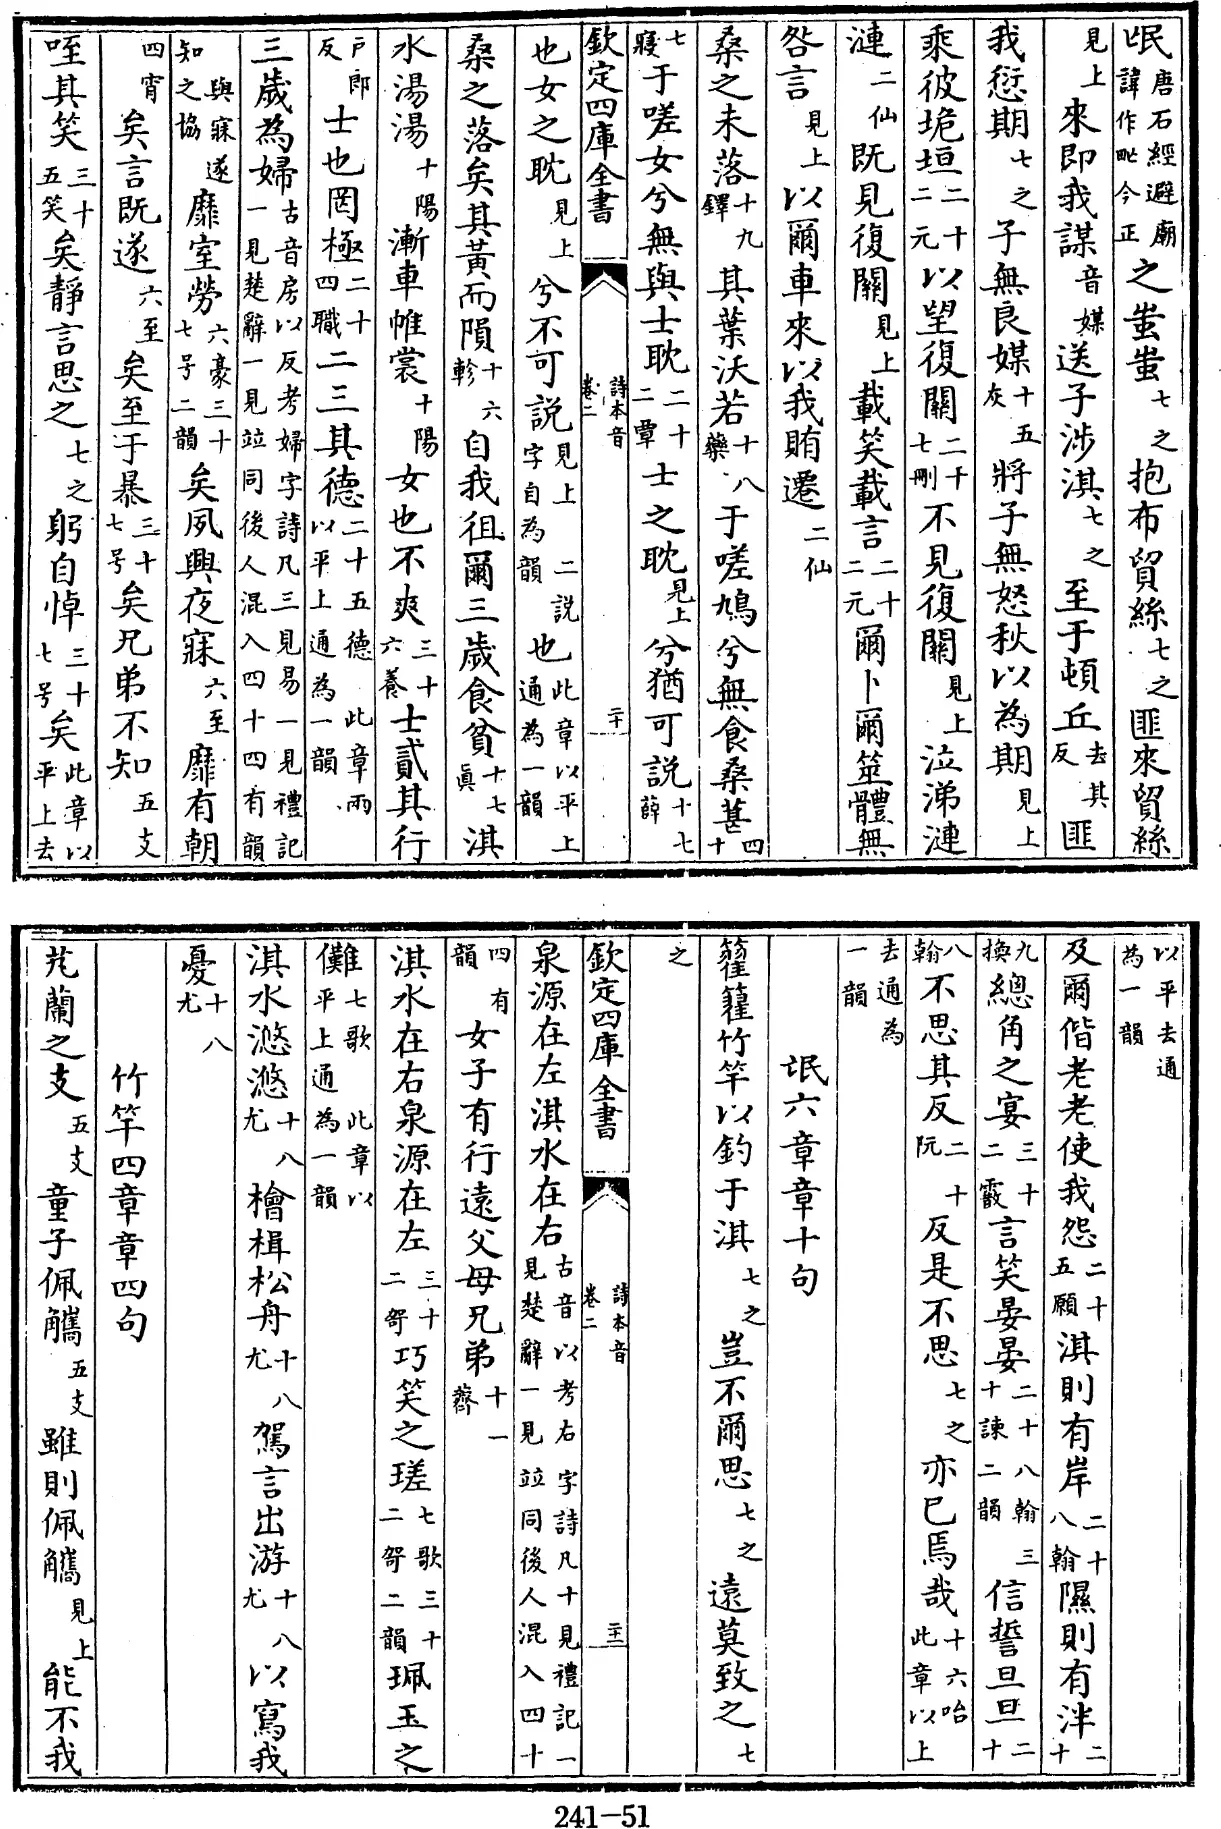 氓唐石經避廟諱作甿今正之蚩蚩七之抱布貿絲七之匪來貿絲
見上來即我謀音媒送子涉淇七之至于頓丘去其反匪
我愆期七之子無良媒十五灰將子無怒秋以為期見上
乘彼垝垣二十二元以望復關二十七刪不見復關見上泣涕漣
漣二仙既見復關見上載笑載言二十二元爾卜爾筮體無
咎言見上以爾車來以我賄遷二仙
桑之未落十九鐸其葉沃若十八藥于嗟鳩兮無食桑葚四十
七寢于嗟女兮無與士耽二十二覃士之耽見上兮猶可說十七薛
欽定四庫全書 詩本音卷二 二十
也女之耽見上兮不可說見上二說字自為韻也此章以平上通為一韻
桑之落矣其黃而隕十六軫自我徂爾三歲食貧十七真淇
水湯湯十陽漸車帷裳十陽女也不爽三十六養士貳其行
戶郎反士也罔極二十四職二三其德二十五德此章兩以平上通為一韻
三歲為婦古音房以反考婦字詩凡三見易一見禮記一見楚辭一見竝同後人混入四十四有韻
與寐遂知之協靡室勞六豪三十七号二韻矣夙興夜寐六至靡有朝
四宵矣言既遂六至矣至于暴三十七号矣兄弟不知五支
咥其笑三十五笑矣靜言思之七之躬自悼三十七号矣此章以平上去
以平去通為一韻
及爾偕老老使我怨二十五願淇則有岸二十八翰隰則有泮二十
九換總角之宴三十二霰言笑晏晏二十八翰三十諫二韻信誓旦旦二十
八翰不思其反二十阮反是不思七之亦已焉哉十六咍此章以上
去通為一韻
氓六章章十句
籊籊竹竿以釣于淇七之豈不爾思七之遠莫致之七
之
欽定四庫全書 詩本音卷二 二十一
泉源在左淇水在右古音以考右字詩凡十見禮記一見楚辭一見竝同後人混入四十
四有韻女子有行遠父母兄弟十一薺
淇水在右泉源在左三十二哿巧笑之瑳七歌三十二哿二韻珮玉之
儺七歌此章以平上通為一韻
淇水滺滺十八尤檜楫松舟十八尤駕言出游十八尤以寫我
憂十八尤
竹竿四章章四句
芄蘭之支五支童子佩觿五支雖則佩觿見上能不我
241-51